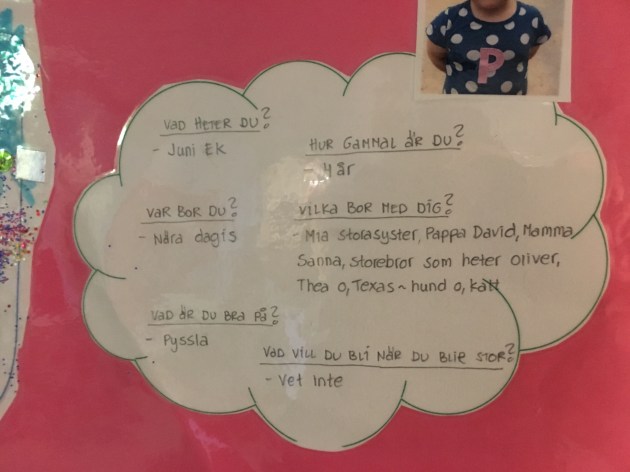 P
VAD HETER DU?
- Juni Ek
HUR GAMMAL ÄR DU?
- 4 år
VAR BOR DU?
- Nära dagis
VILKA BOR MED DIG?
- Mia storasyster, Pappa David, Mamma
Sanna, storebror som heter oliver,
Thea o, Texas ~ hund o, katt
VAD ÄR DU BRA PÅ?
- Pyssla
VAD VILL DU BLI NÄR DU BLIR STOR?
- Vet inte